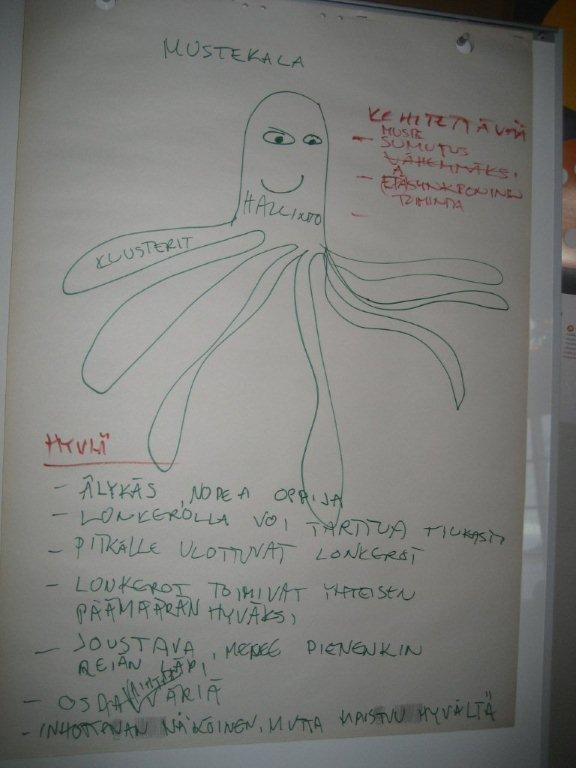 MUSTEKALA
KEHITETTÄVÄÄ
- MUSTE
SUMUTUS
VÄHEMMÄKSI
- ETÄSYNKRONINEN
TOIMINTA
-
HALLINTO
KLUSTERIT
HYVÄÄ
- ÄLYKÄS, NOPEA OPPIJA
- LONKEROLLA VOI TARTTUA TIUKASTI
- PITKÄLLE ULOTTUVAT LONKEROT
- LONKEROT TOIMIVAT YHTEISEN
PÄÄMÄÄRÄN HYVÄKSI
- JOUSTAVA, MENEE PIENENKIN
REIÄN LÄPI
- OSAA VÄRIÄ
- INHOTTAVAN NÄKÖINEN, MUTTA MAISTUU HYVÄLTÄ